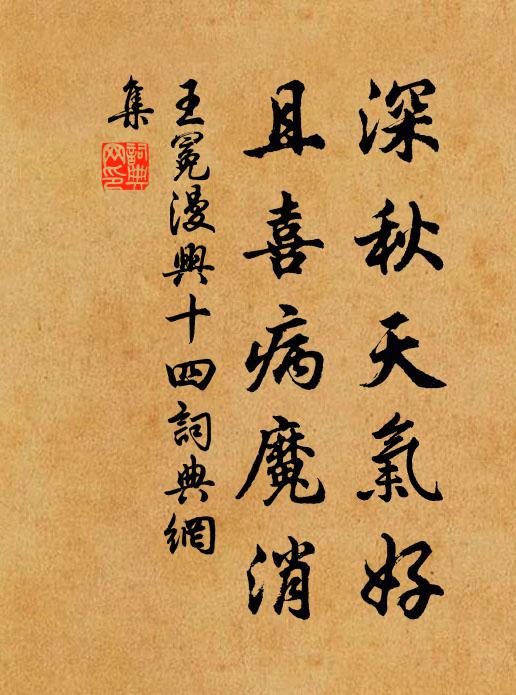 深秋天氣好
且喜病魔消
王冕漫興十四詞典網
集
詞典
網印